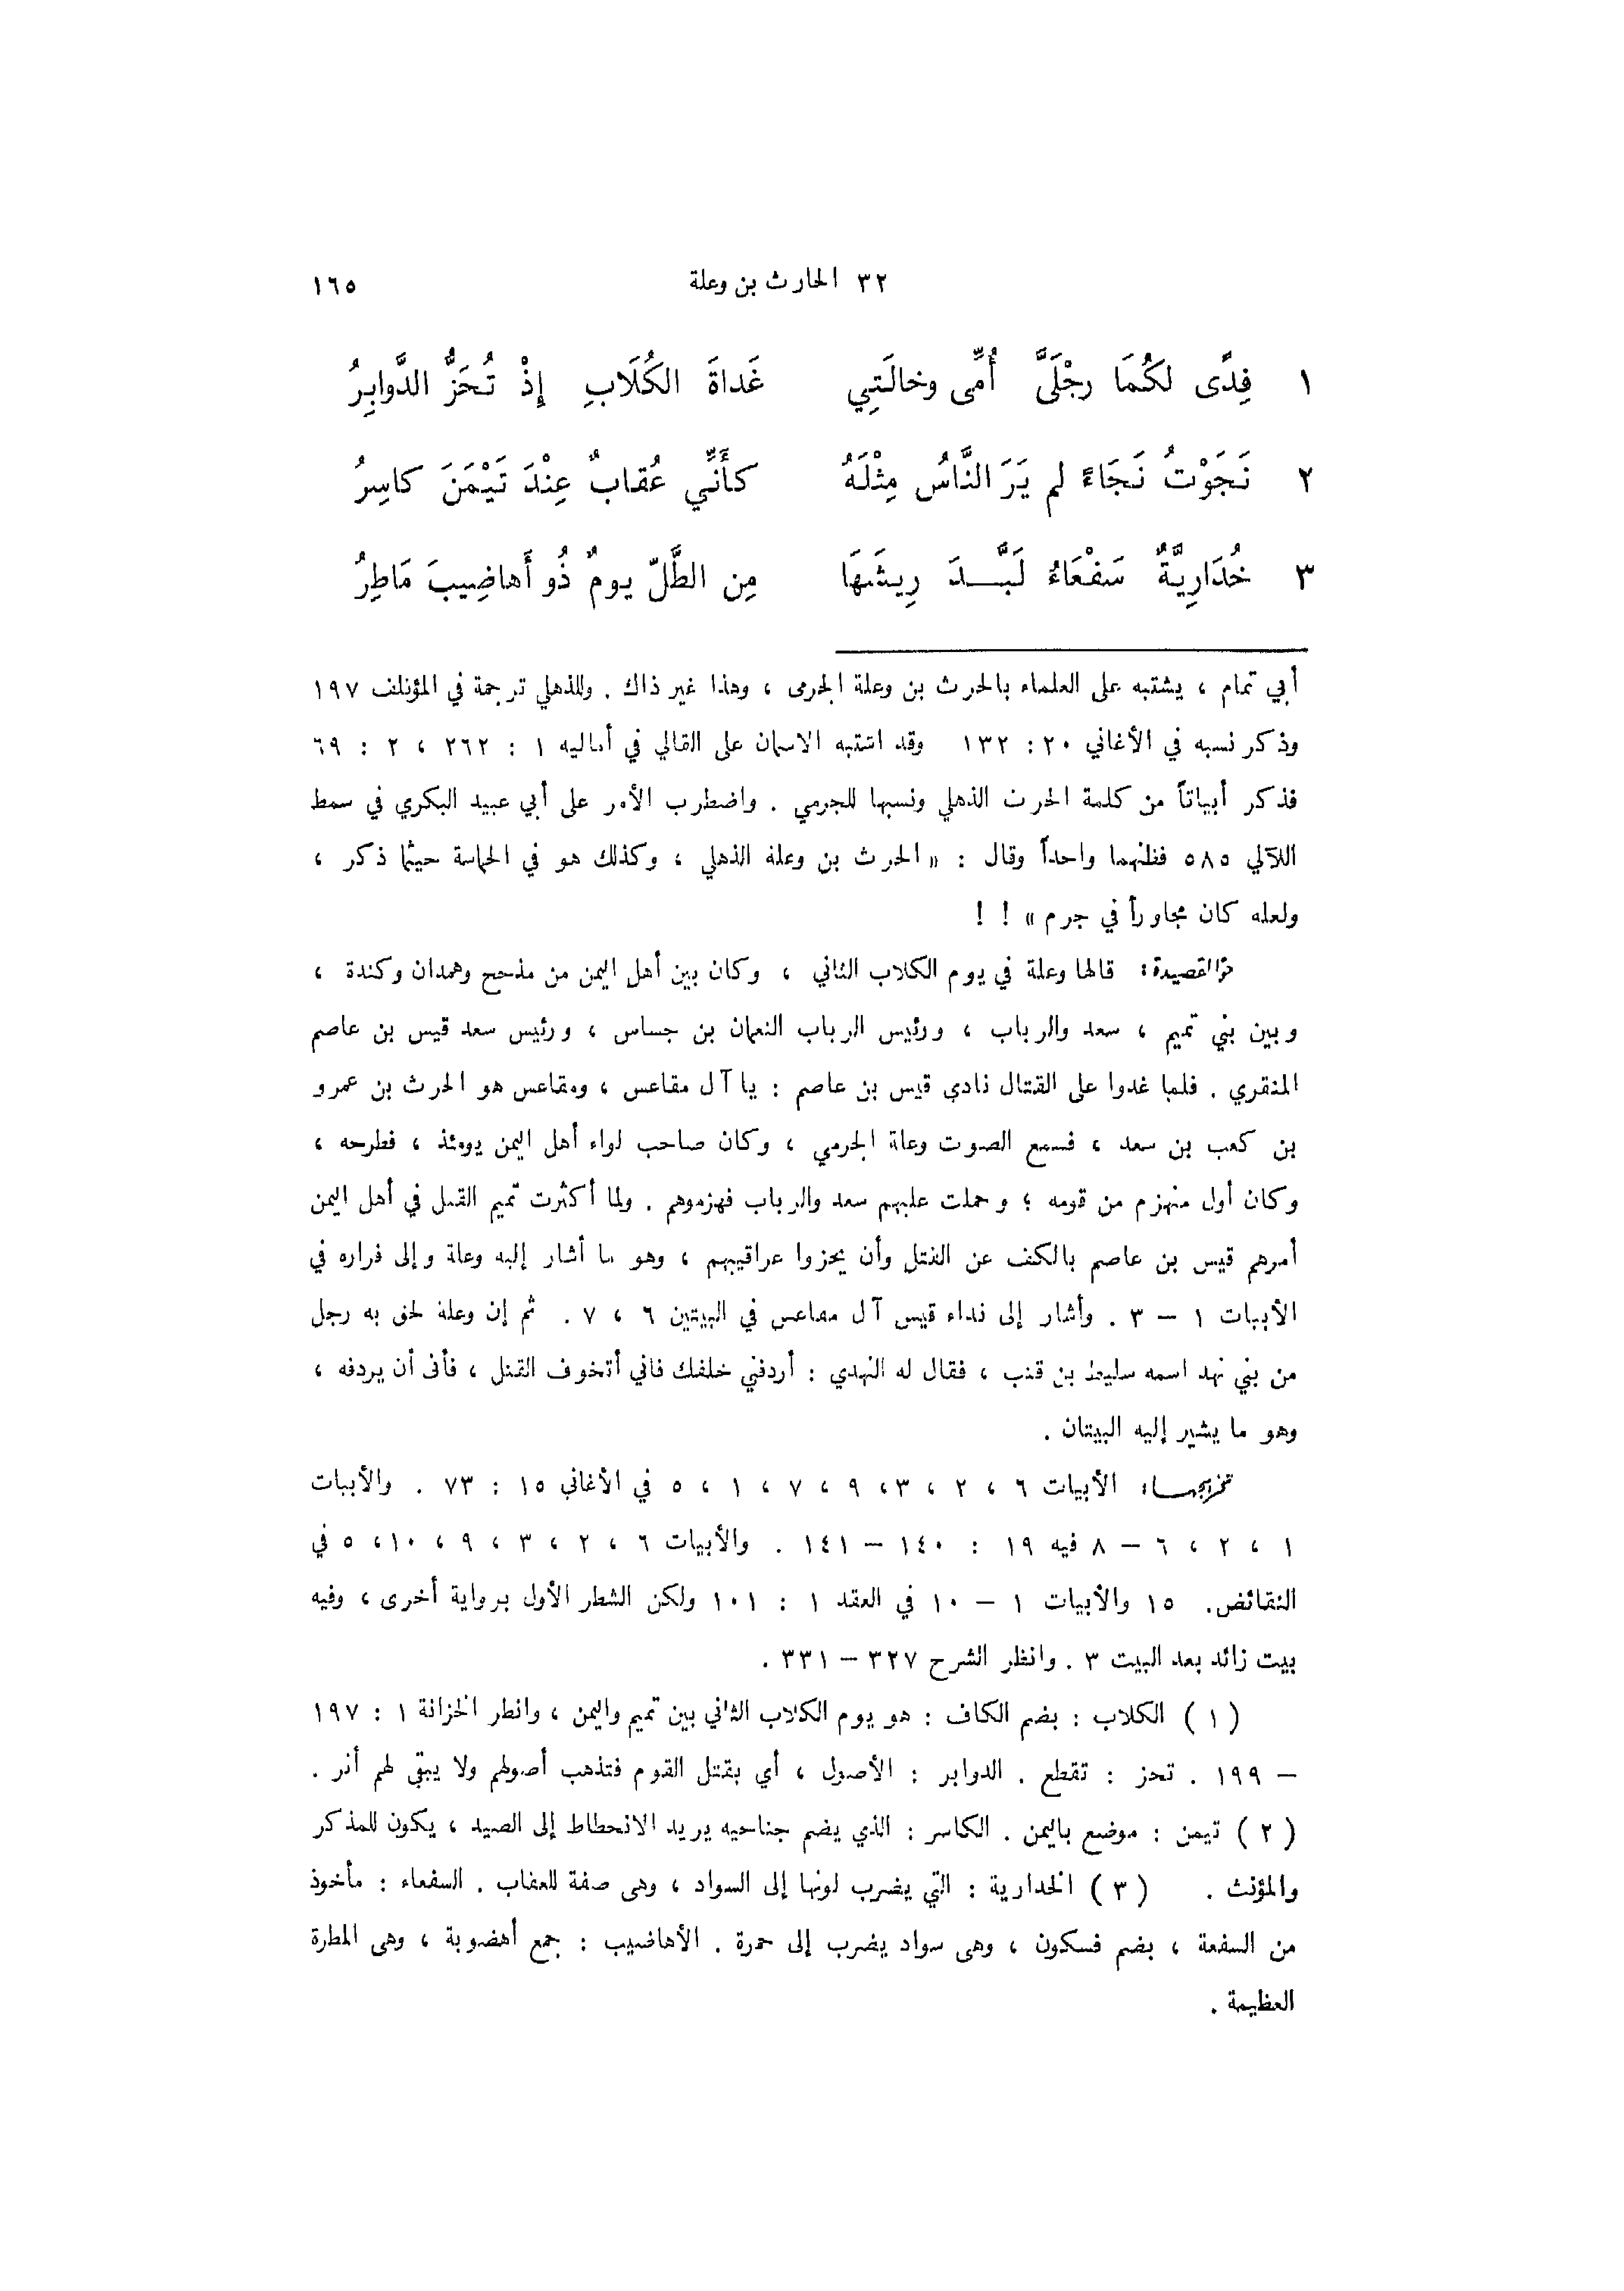 ٣٢ الحارث بن وعلة ١٦٥
١ فِدًى لَكُمَا رِجْلَىَّ أُمِّى وخالَتِي غَداةَ الكُلَابِ إِذْ تُحَزُّ الدَّوابِرُ
٢ نَجَوْتُ نَجَاءً لم يَرَ النَّاسُ مِثْلَهُ كأَنِّي عُقابٌ عِنْدَ تَيْمَنَ كاسِرُ
٣ خُدَارِيَّةٌ سَفْعَاءُ لَبَّــدَ رِيشَهَا مِن الطَّلِّ يومٌ ذُو أَهاضِيبَ مَاطِرُ
أبي تمام ، يشتبه على العلماء بالحرث بن وعلة الجرمى ، وهذا غير ذاك . وللذهلي ترجمة في المؤتلف ١٩٧
وذكر نسبه في الأغاني ٢٠ : ١٣٢ وقد اشتبه الاسمان على القالي في أماليه ١ : ٢٦٢ ، ٢ : ٦٩
فذكر أبياتاً من كلمة الحرث الذهلي ونسبها للجرمي . واضطرب الأمر على أبي عبيد البكري في سمط
اللآلي ٥٨٥ فظنهما واحداً وقال : « الحرث بن وعلة الذهلي ، وكذلك هو في الحماسة حيثما ذكر ،
ولعله كان مجاوراً في جرم » ! !
القصيدة: قالها وعلة في يوم الكلاب الثاني ، وكان بين أهل اليمن من مذحج وهمدان وكندة ،
وبين بني تميم ، سعد والرباب ، ورئيس الرباب النعمان بن جساس ، ورئيس سعد قيس بن عاصم
المنقري . فلما غدوا على القتال نادي قيس بن عاصم : يا آل مقاعس ، ومقاعس هو الحرث بن عمرو
بن كعب بن سعد ، فسمع الصوت وعلة الجرمي ، وكان صاحب لواء أهل اليمن يومئذ ، فطرحه ،
وكان أول منهزم من قومه ؛ وحملت عليهم سعد والرباب فهزموهم . ولما أكثرت تميم القتل في أهل اليمن
أمرهم قيس بن عاصم بالكف عن القتل وأن يحزوا عراقيبهم ، وهو ما أشار إليه وعلة وإلى فراره في
الأبيات ١ – ٣ . وأشار إلى نداء قيس آل مقاعس في البيتين ٦ ، ٧ . ثم إن وعلة لحق به رجل
من بني نهد اسمه سليط بن قتب ، فقال له النهدي : أردفني خلفك فاني أتخوف القتل ، فأبى أن يردفه ،
وهو ما يشير إليه البيتان .
تخريجهــا: الأبيات ٦ ، ٢ ، ٣، ٩ ، ٧ ، ١ ، ٥ في الأغاني ١٥ : ٧٣ . والأبيات
١ ، ٢ ، ٦ – ٨ فيه ١٩ : ١٤٠ – ١٤١ . والأبيات ٦ ، ٢ ، ٣ ، ٩ ، ١٠، ٥ في
النقائض. ١٥ والأبيات ١ – ١٠ في العقد ١ : ١٠١ ولكن الشطر الأول برواية أخرى ، وفيه
بيت زائد بعد البيت ٣ . وانظر الشرح ٣٢٧ – ٣٣١ .
( ١ ) الكلاب : بضم الكاف : هو يوم الكلاب الثاني بين تميم واليمن ، وانظر الخزانة ١ : ١٩٧
– ١٩٩ . تحز : تقطع . الدوابر : الأصول ، أي بقتل القوم فتذهب أصولهم ولا يبقى لهم أثر .
( ٢ ) تيمن : موضع باليمن . الكاسر : الذي يضم جناحيه يريد الانحطاط إلى الصيد ، يكون للمذكر
والمؤنث . ( ٣ ) الخدارية : التي يضرب لونها إلى السواد ، وهى صفة للعقاب . السفعاء : مأخوذ
من السفعة ، بضم فسكون ، وهى سواد يضرب إلى حمرة . الأهاضيب : جمع أهضوبة ، وهى المطرة
العظيمة .